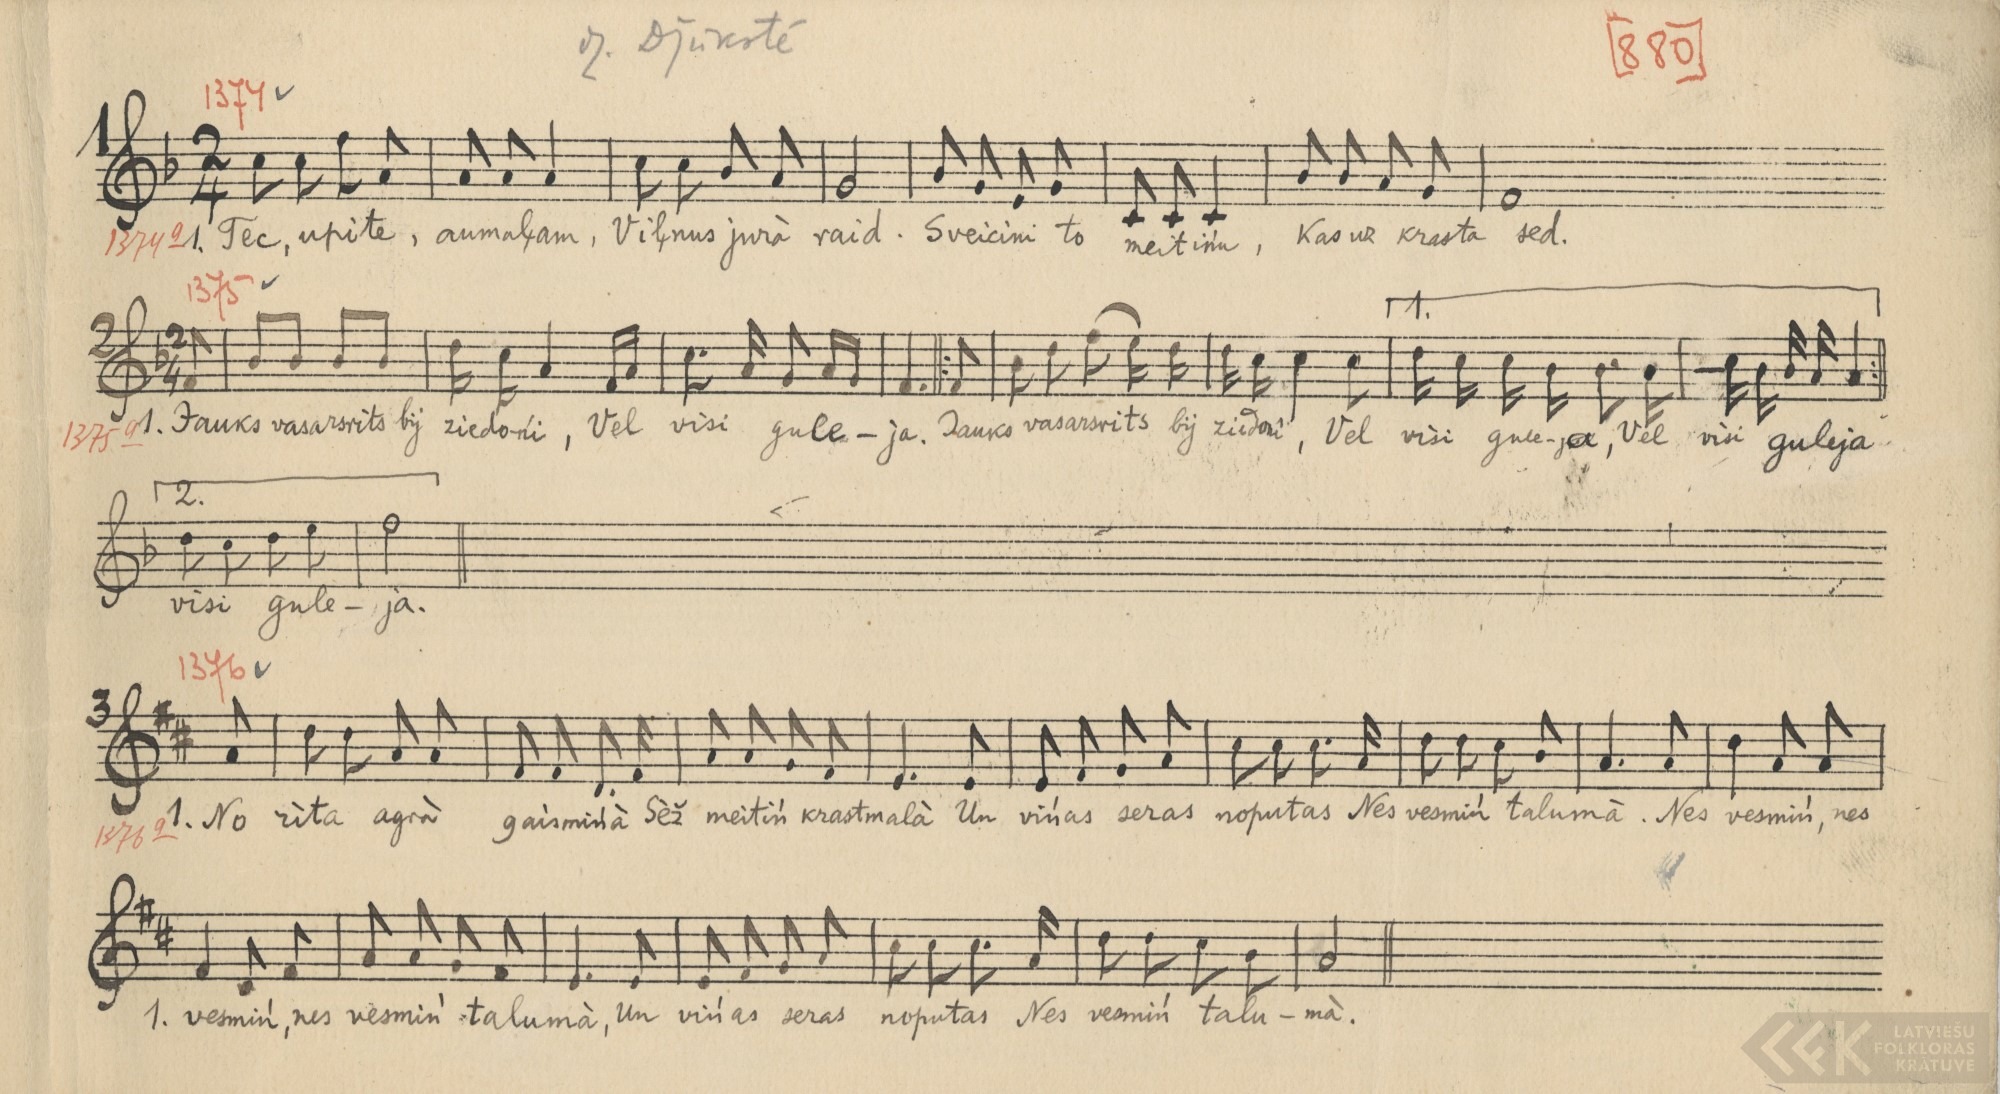 Džūkstē
[880]
1374 ✓
1
2/4
1374a 1. Tec, upite, aumaļam, Viļnus jurà raid. Sveicini to meitińu, Kas uz krasta sed.
1375 ✓
1.
2
2/4
1375a 1. Jauks vasarsrits bij ziedoni, Vel visi gule-ja. Jauks vasarsrits bij ziedoni, Vel visi gule-ja, Vel visi guleja
2.
visi gule-ja.
1376 ✓
3
1376a 1. No rita agrà gaismińà Sèž meitiń krastmalà Un vińas seras noputas Nes vesmiń talumà. Nes vesmiń, nes
1. vesmiń, nes vèsmiń talumà, Un vińas seras noputas Nes vesmiń talu-mà.
LATVIEŠU
FOLKLORAS
KRĀTUVE